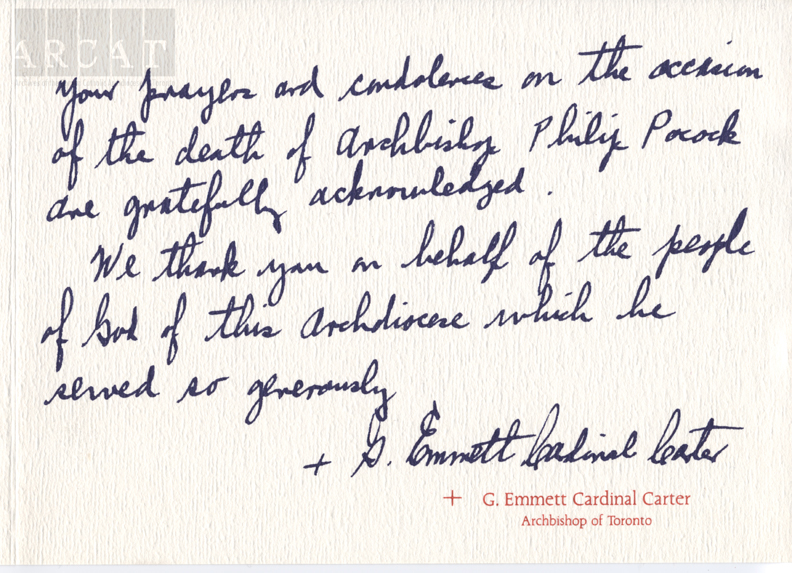 ARCAT
Your prayers and condolences on the occasion
of the death of Archbishop Philip Pocock
are gratefully acknowledged.
We thank you on behalf of the people
of God of this Archdiocese which he
served so generously
+ G. Emmett Cardinal Carter
+ G. Emmett Cardinal Carter
Archbishop of Toronto